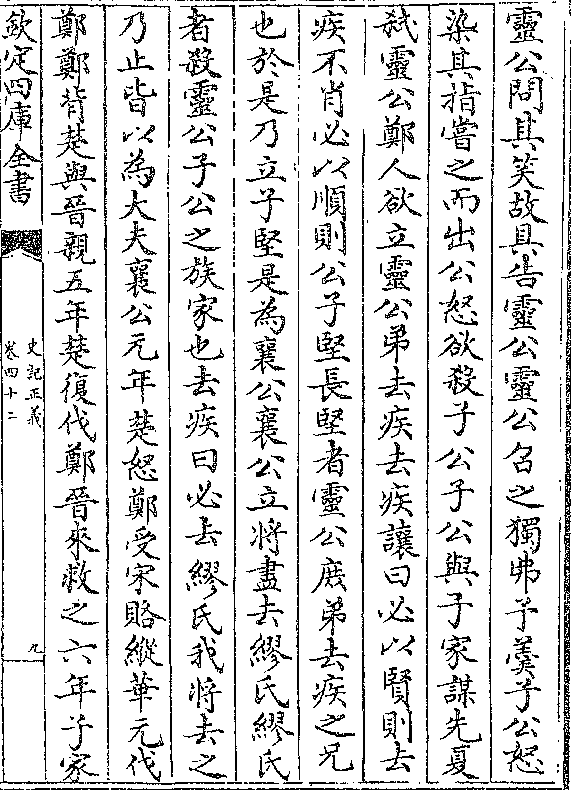 靈公問其笑故具告靈公靈公召之獨弗予羮子公怒
染其指嘗之而出公怒欲殺子公子公與子家謀先夏
弑靈公鄭人欲立靈公弟去疾去疾讓曰必以賢則去
疾不肖必以順則公子堅長堅者靈公庶弟去疾之兄
也於是乃立子堅是為襄公襄公立將盡去繆氏繆氏
者殺靈公子公之族家也去疾曰必去繆氏我將去之
乃止皆以為大夫襄公元年楚怒鄭受宋賂縱華元伐
鄭鄭背楚與晉親五年楚復伐鄭晉來救之六年子家
欽定四庫全書
史記正義
卷四十二
九